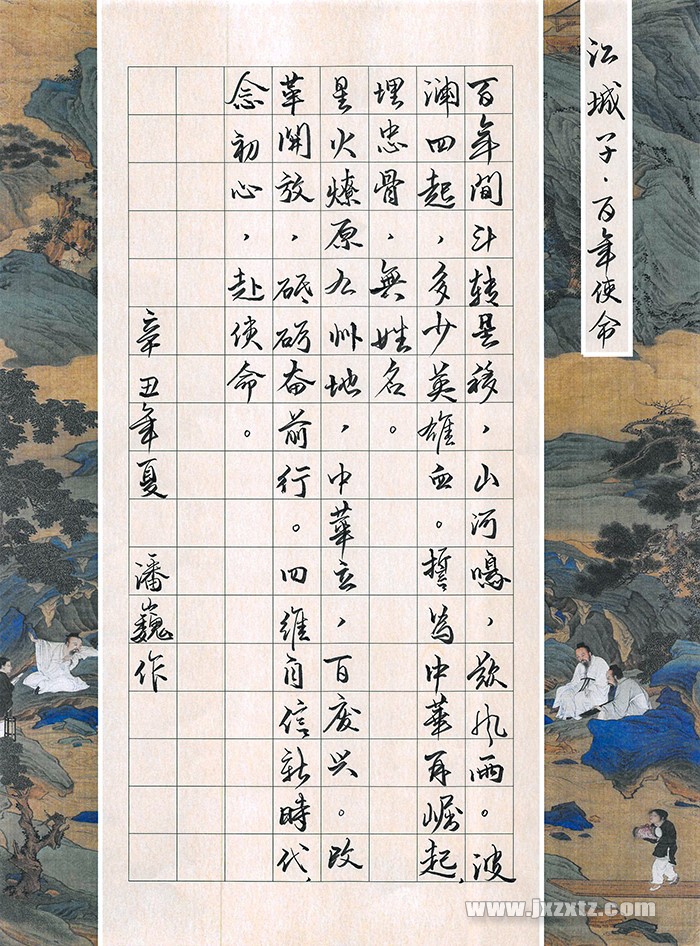 江城子·百年使命
百年間斗转星移，山河鳴，歎风雨。波
澜四起，多少英雄血。誓為中華再崛起，
埋忠骨，無姓名。
星火燎原九州地，中華立，百废兴。改
革開放，砥砺奋前行。四维自信新時代，
念初心，赴使命。
辛丑年夏 潘巍作
www.jxzxtz.com